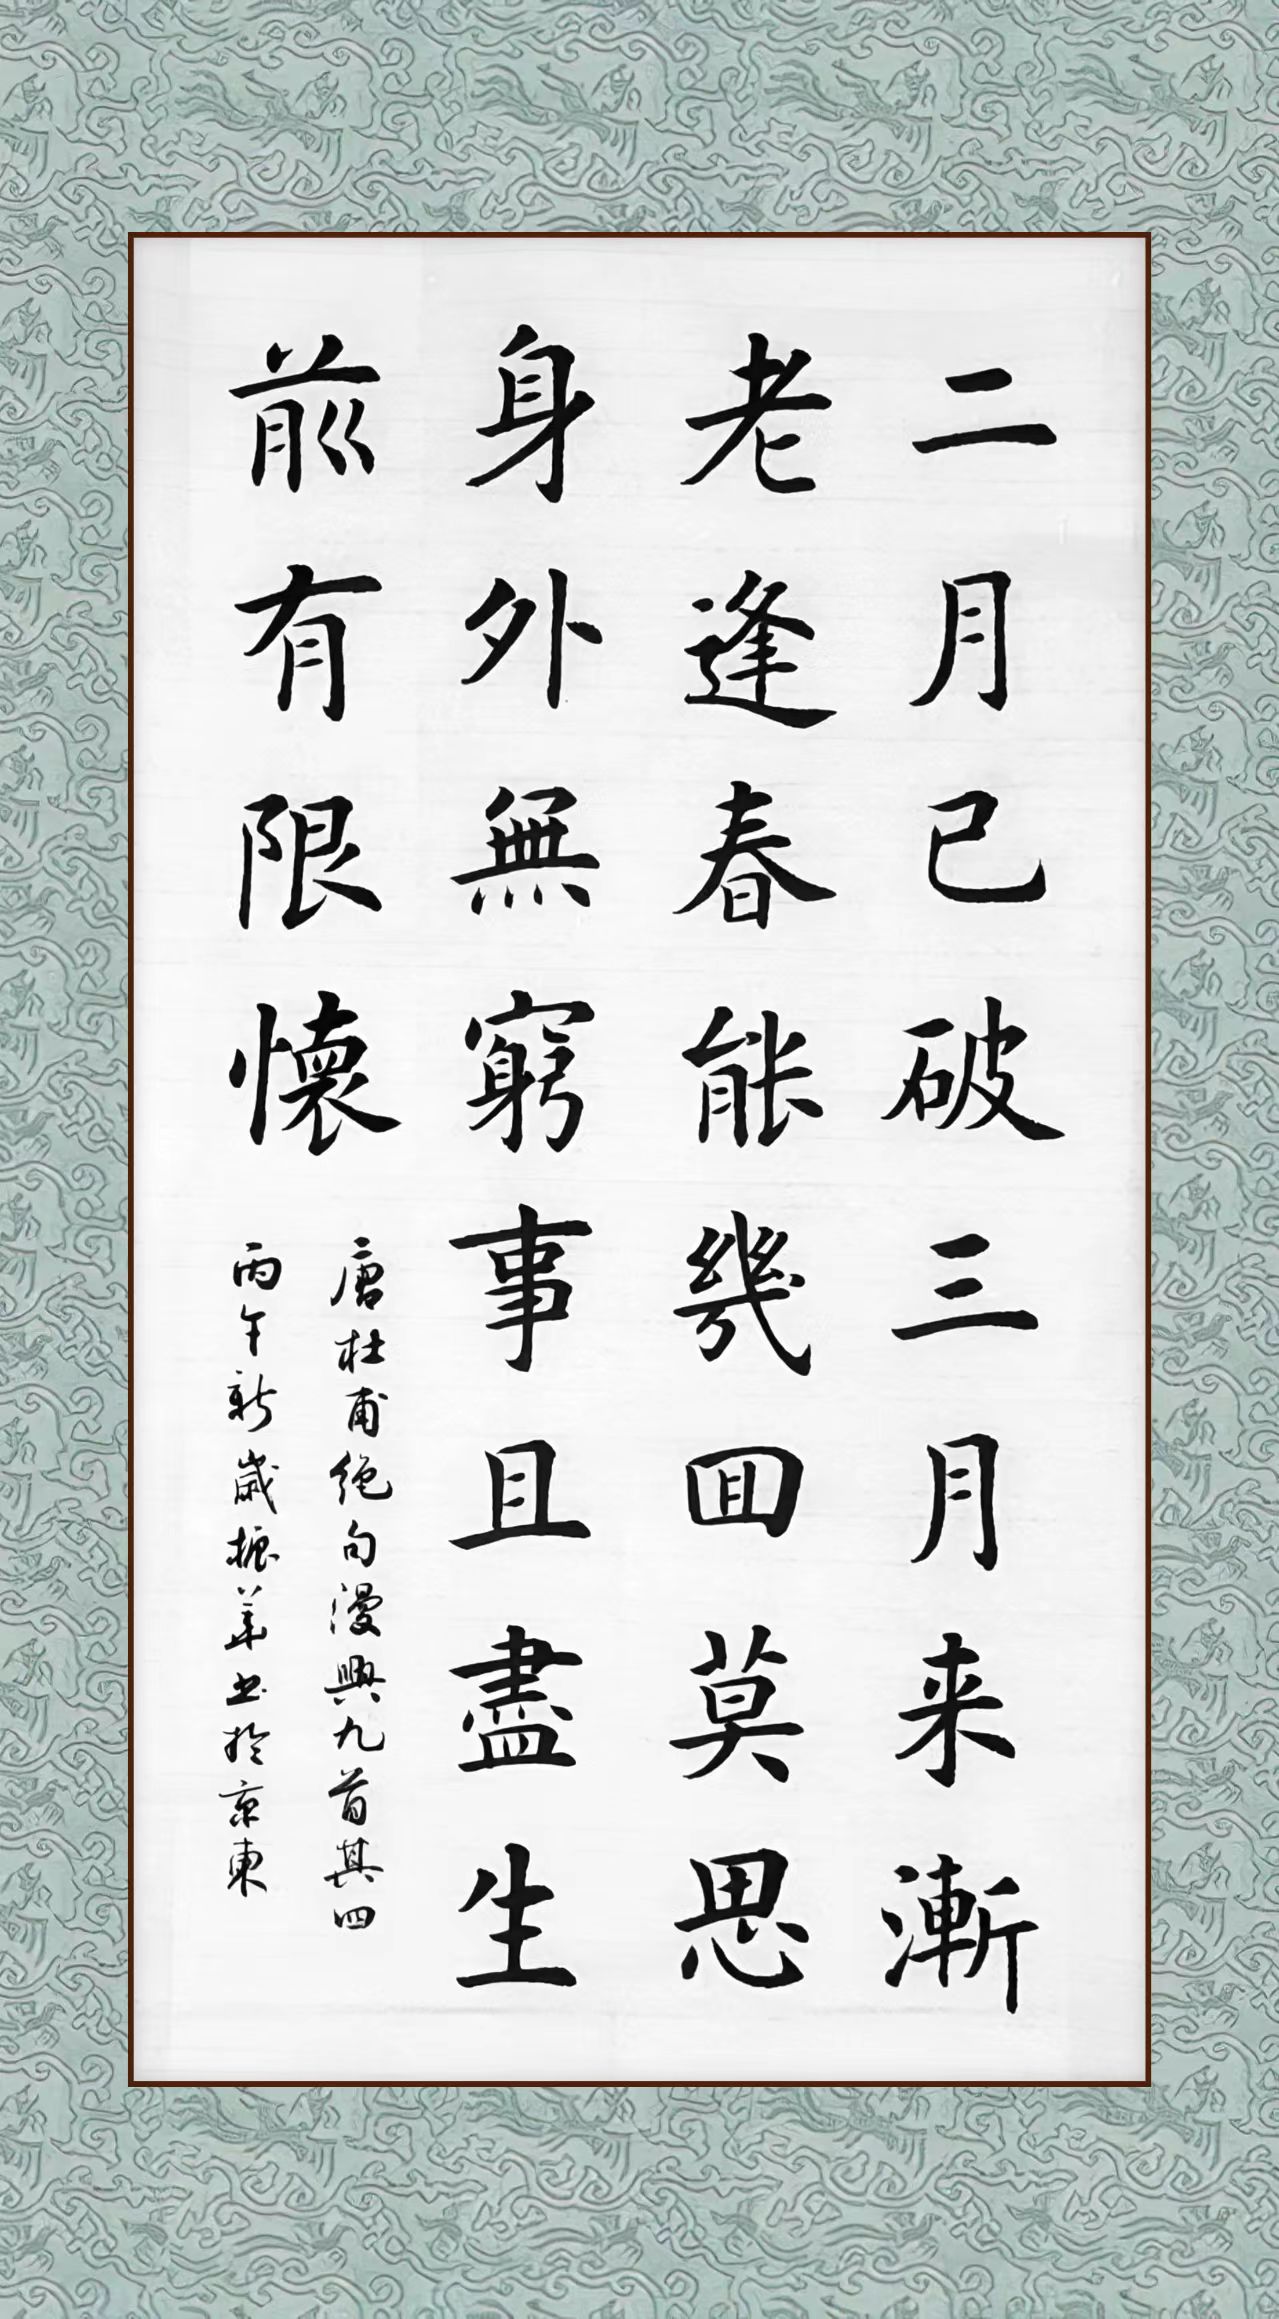 二月已破三月来漸
老逢春能幾囬莫思
身外無窮事且盡生
前有限懷
唐杜甫絶句漫興九首其四
丙午新歲振華书於京東